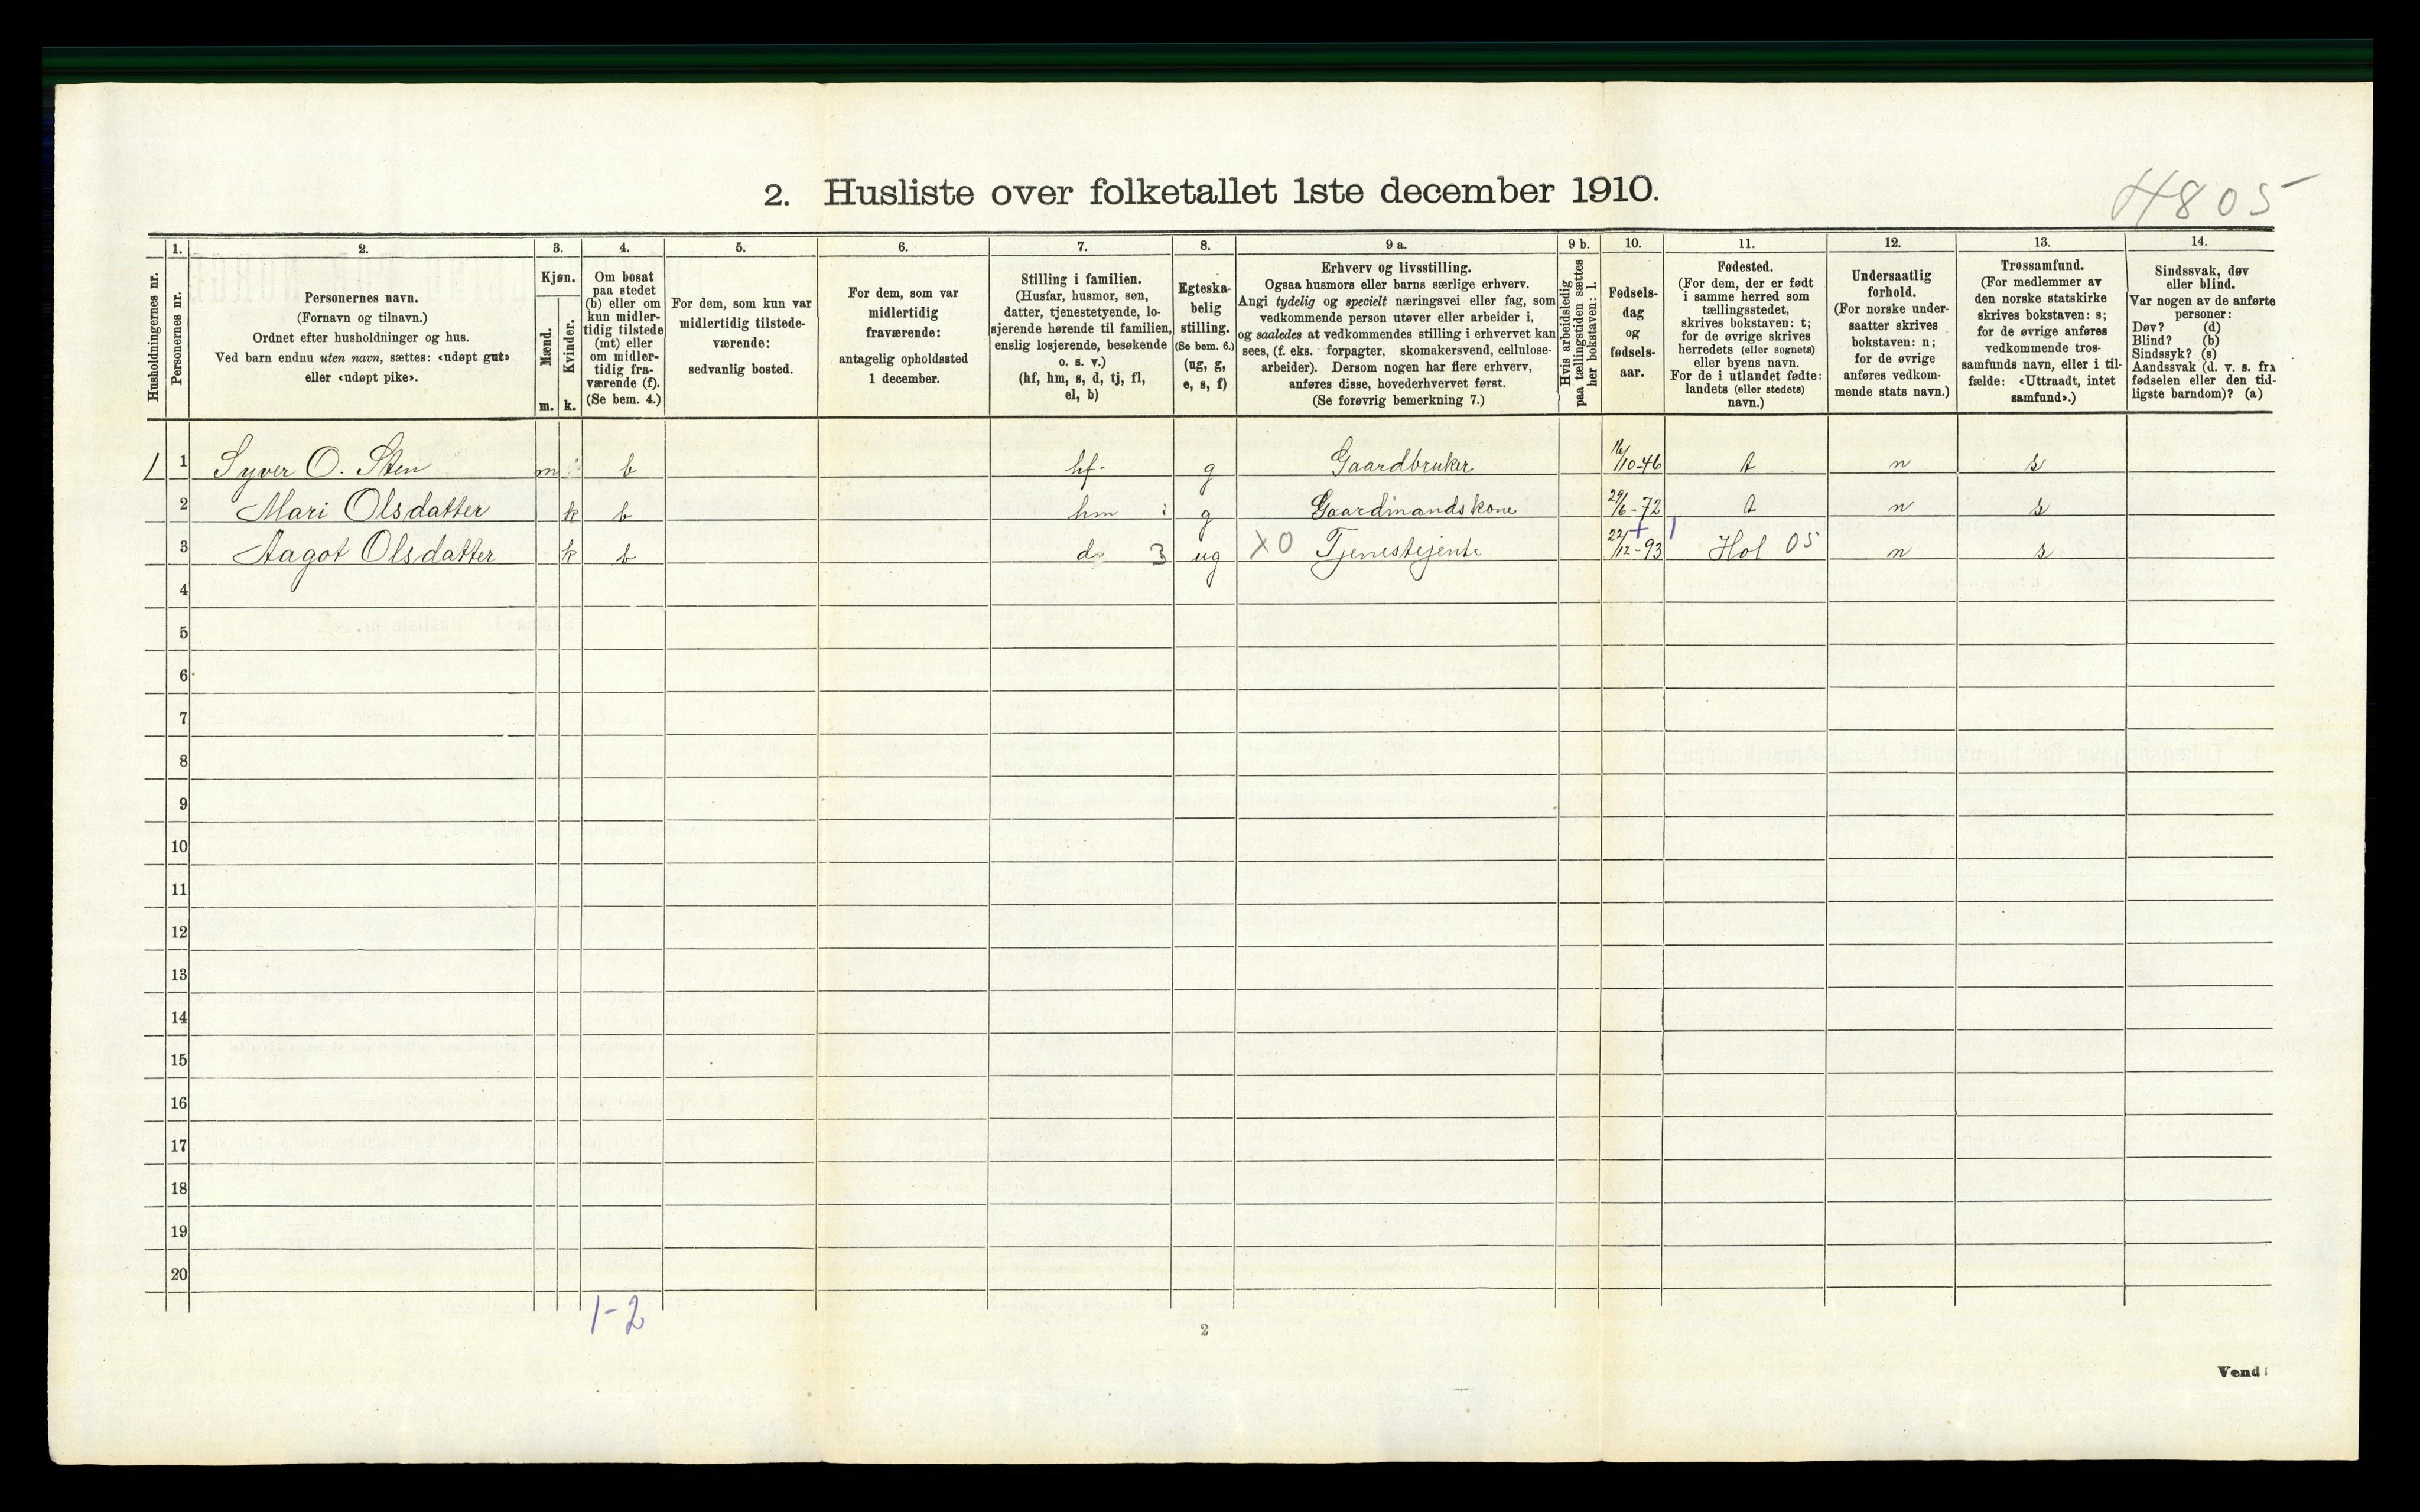 2. Husliste over folketallet 1ste december 1910.
4805
Husholdningernes nr.
1.
Personernes nr.
2.
Personernes navn.
(Fornavn og tilnavn.)
Ordnet efter husholdninger og hus.
Ved barn endnu uten navn, sættes: «udøpt gut»
eller «udøpt pike».
3.
Kjøn.
Mænd.
Kvinder.
m. k.
4.
Om bosat
paa stedet
(b) eller om
kun midler-
tidig tilstede
(mt) eller
om midler-
tidig fra-
værende (f).
(Se bem. 4.)
5.
For dem, som kun var
midlertidig tilstede-
værende:
sedvanlig bosted.
6.
For dem, som var
midlertidig
fraværende:
antagelig opholdssted
1 december.
7.
Stilling i familien.
(Husfar, husmor, søn,
datter, tjenestetyende, lo-
sjerende hørende til familien,
enslig losjerende, besøkende
o. s. v.)
(hf, hm, s, d, tj, fl,
el, b)
8.
Egteska-
belig
stilling.
(Se bem. 6.)
(ug, g,
e, s, f)
9 a.
Erhverv og livsstilling.
Ogsaa husmors eller barns særlige erhverv.
Angi tydelig og specielt næringsvei eller fag, som
vedkommende person utøver eller arbeider i,
og saaledes at vedkommendes stilling i erhvervet kan
sees, (f. eks. forpagter, skomakersvend, cellulose-
arbeider). Dersom nogen har flere erhverv,
anføres disse, hovederhvervet først.
(Se forøvrig bemerkning 7.)
9 b.
Hvis arbeidsledig
paa tællingstiden sættes
her bokstaven: l.
10.
Fødsels-
dag
og
fødsels-
aar.
11.
Fødested.
(For dem, der er født
i samme herred som
tællingsstedet,
skrives bokstaven: t;
for de øvrige skrives
herredets (eller sognets)
eller byens navn.
For de i utlandet fødte:
landets (eller stedets)
navn.)
12.
Undersaatlig
forhold.
(For norske under-
saatter skrives
bokstaven: n;
for de øvrige
anføres vedkom-
mende stats navn.)
13.
Trossamfund.
(For medlemmer av
den norske statskirke
skrives bokstaven: s;
for de øvrige anføres
vedkommende tros-
samfunds navn, eller i til-
fælde: «Uttraadt, intet
samfund».)
14.
Sindssvak, døv
eller blind.
Var nogen av de anførte
personer:
Døv? (d)
Blind? (b)
Sindssyk? (s)
Aandssvak (d. v. s. fra
fødselen eller den tid-
ligste barndom)? (a)
1 1 Syver O. Sten m b hf g Gaardbruker 16/10-46 t n s
2 Mari Olsdatter k b hm g Gaardmandskone 29/6-72 t n s
3 Aagot Olsdatter k b d 3 ug X0 Tjenestejente 22/12-93 Hol 05 n s
4
5
6
7
8
9
10
11
12
13
14
15
16
17
18
19
20
1-2
2
Vend